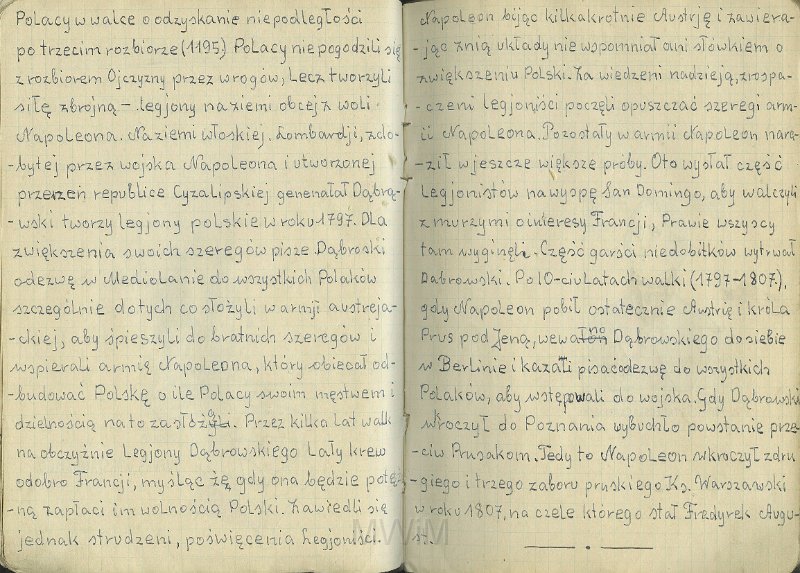 Polacy w walce o odzyskanie niepodległości
po trzecim rozbiorze (1195) Polacy nie pogodzili się
z rozbiorem Ojczyzny przez wrogów, Lecz tworzyli
siłę zbrojną – legjony na ziemi obcej z woli
Napoleona. Na ziemi włoskiej. Lombardji, zdo-
-bytej przez wojska Napoleona i utworzonej
przezeń republice Cyzalipskiej generałał Dąbrą-
-wski tworzy legjony polskie w roku 1797. Dla
zwiększenia swoich szeregów pisze Dąbroski
odezwę w Mediolanie do wszystkich Polaków
szczególnie do tych co słożyli w armji austreja-
-ckiej, aby śpieszyli do bratnich szeregów i
wspierali armię Napoleona, który obiecał od-
-budować Polskę o ile Polacy swoim męstwem i
dzielnością na to zasłóżą. Przez kilka lat walk
na obczyźnie Legjony Dąbrowskiego Lały krew
o dobro Francji, myśląc żę gdy ona będzie potęż-
-ną zapłaci im wolnością Polski. Zawiedli się
jednak strudzeni, poświęcenia Legjoniści.
Napoleon bijąc kilkakrotnie Austrję i zawiera-
-jąc z nią układy nie wspomniał ani słówkiem o
zwiększeniu Polski. Za wiedzeni nadzieją, zrospa-
-czeni legjoniści poczęli opuszczać szeregi arm-
-ii Napoleona. Pozostały w armii Napoleon nara-
-ził w jeszcze większe próby. Oto wysłał część
Legjonistów na wyspę San Domingo, aby walczyli
z murzymi o interesy Francji, Prawie wszyscy
tam wyginęli. Część garści niedobitków wytrwał
Dabrowski. Po 10-ciu Latach walki (1797-1807),
gdy Napoleon pobił ostatecznie Austrię i króla
Prus pod Jeną, wewałno Dąbrowskiego do siebie
w Berlinie i kazali pisać odezwę do wszystkich
Polaków, aby wstępowali do wojska. Gdy Dąbrowski
wkroczył do Poznania wybuchło powstanie prze-
-ciw Prusakom. Tedy to Napoleon wkroczył z dru-
-giego i trzego zaboru pruskiego Ks. Warszawski
w roku 1807, na czele którego stał Fredyrek Augu-
st.
MWiM